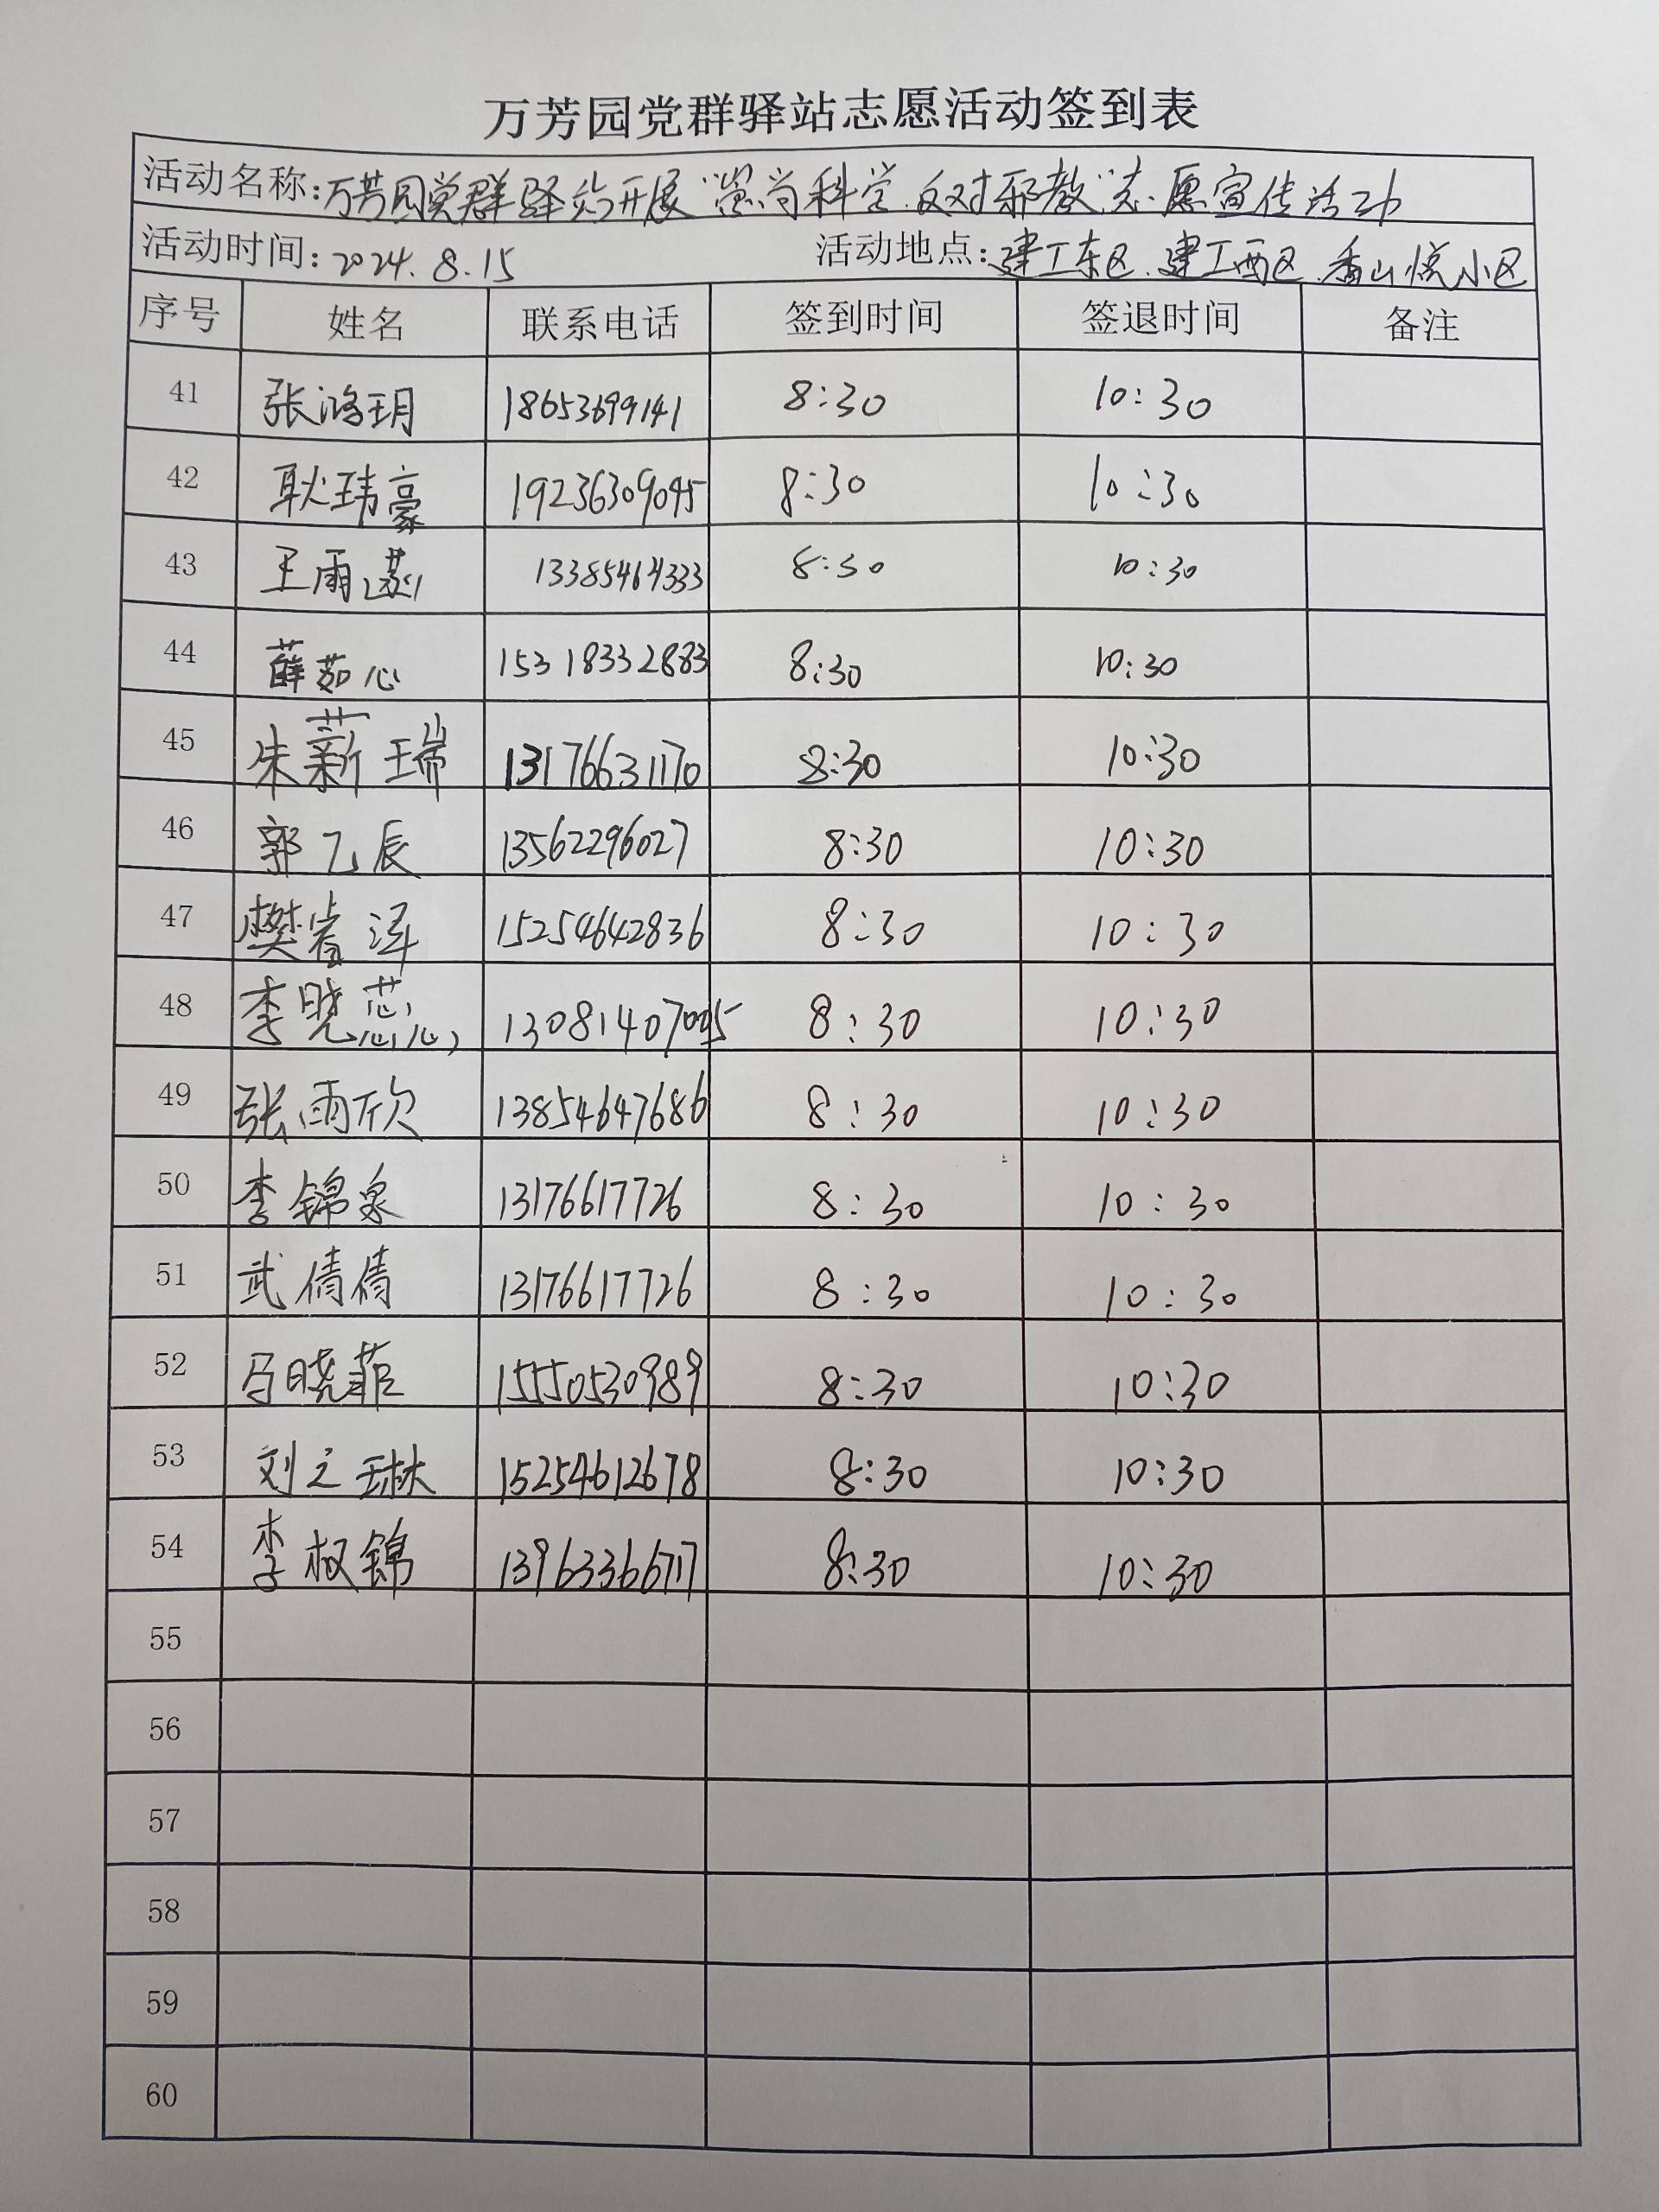 万芳园党群驿站志愿活动签到表
活动名称:万芳园党群驿站开展“崇尚科学.反对邪教”志愿宣传活动
活动时间:2024.8.15 活动地点:建工东区.建工西区.香山悦小区
序号 姓名 联系电话 签到时间 签退时间 备注
41 张鸿玥 18653699141 8:30 10:30
42 耿玮豪 19236309045 8:30 10:30
43 王雨 13385464333 8:30 10:30
44 薛茹心 15318332883 8:30 10:30
45 朱薪瑞 13176631170 8:30 10:30
46 郭乙辰 13562296027 8:30 10:30
47 樊睿泽 15254642836 8:30 10:30
48 李晓蕊 13081407005 8:30 10:30
49 张雨欣 13854647686 8:30 10:30
50 李锦泉 13176617726 8:30 10:30
51 武倩倩 13176617726 8:30 10:30
52 马晓菲 15550530989 8:30 10:30
53 刘之琳 15254612678 8:30 10:30
54 李权锦 13963366717 8:30 10:30
55
56
57
58
59
60